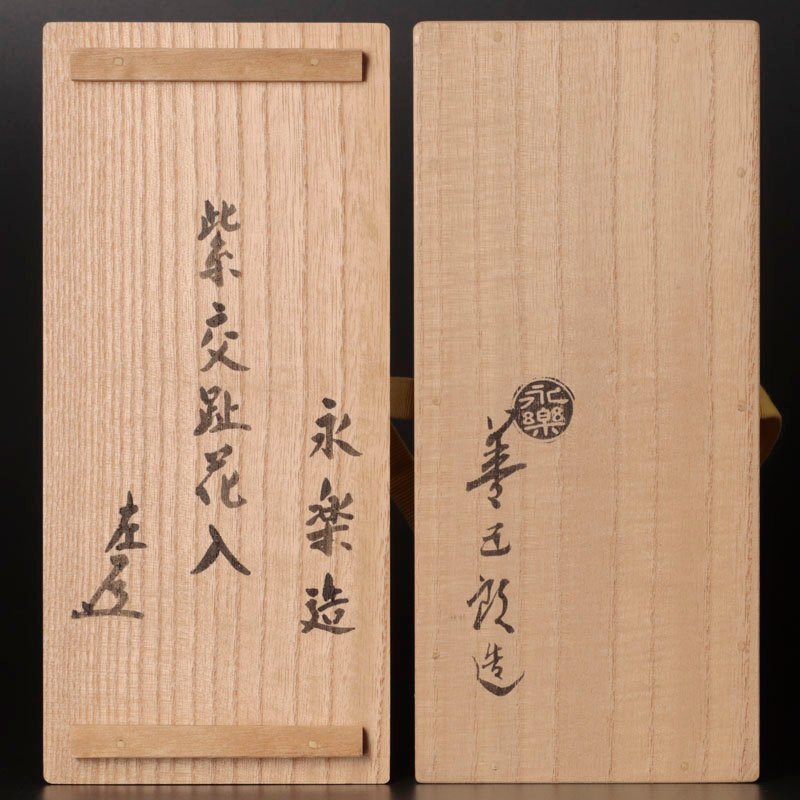 永楽造
紫交趾花入
左
永樂
善五郎造